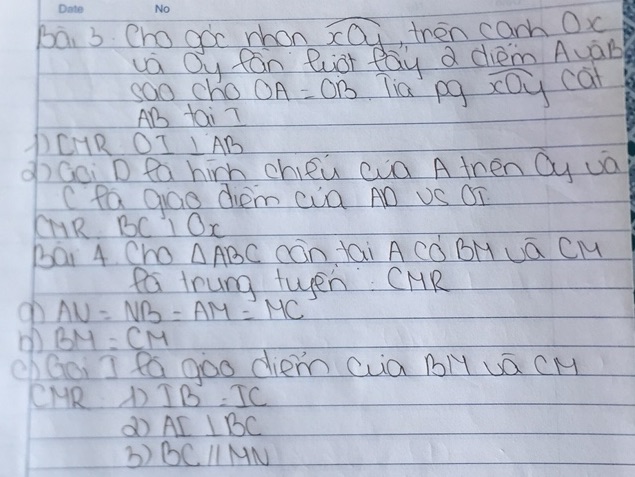 Date No
Bài 3. Cho góc nhọn xOy, trên cạnh Ox
và Oy lần lượt lấy 2 điểm A và B
sao cho OA = OB. Tia pg xOy cắt
AB tại I
1) CMR OI ⊥ AB
2) Gọi D là hình chiếu của A trên Oy và
C là giao điểm của AD vs OI.
CMR BC ⊥ Ox
Bài 4 Cho ΔABC cân tại A có BM và CM
là trung tuyến. CMR
a) AN = NB = AM = MC
b) BM = CM
c) Gọi I là giao điểm của BM và CM
CMR 1) IB = IC
2) AI ⊥ BC
3) BC // MN